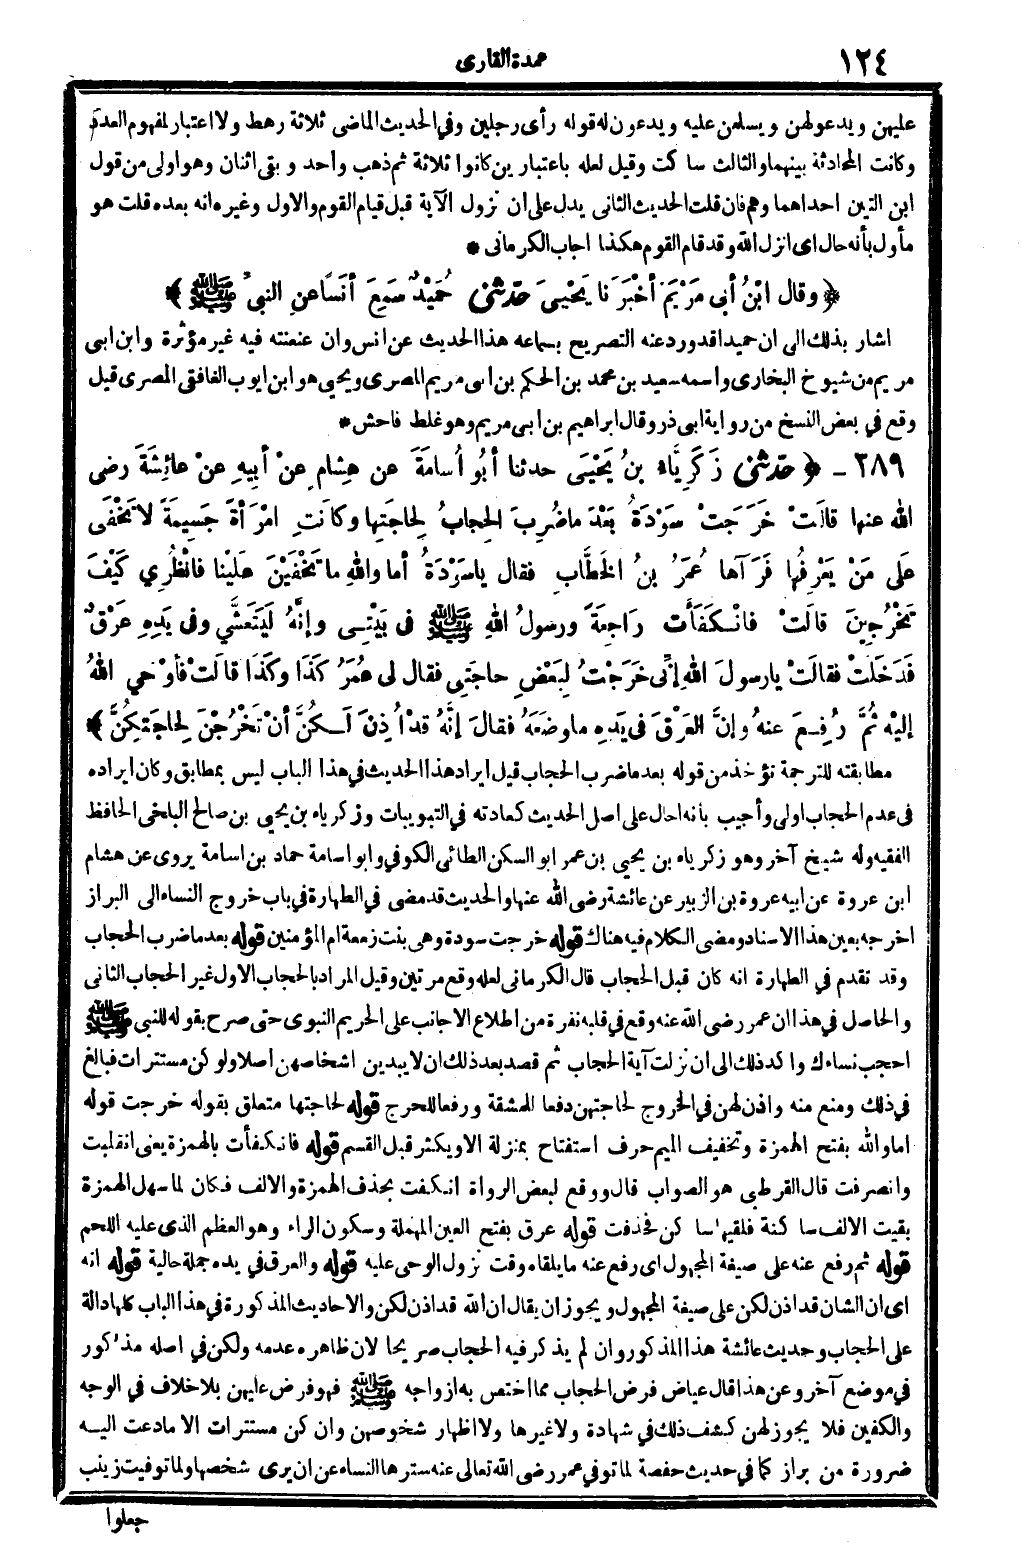 ١٢٤
عمدة القارى
عليهن ويدعولهن ويسلمن عليه ويدعون له قوله رأى رجلين وفي الحديث الماضى ثلاثة رهط ولا اعتبار لمفهوم العدد
وكانت المحادثة بينهما والثالث ساكت وقيل لعله باعتبارين كانوا ثلاثة ثم ذهب واحد وبقى اثنان وهو اولى من قول
ابن التين احداهما وهم فان قلت الحديث الثانى يدل على ان نزول الآية قبل قيام القوم والاول وغيره انه بعده قلت هو
مأول بأنه حال اى انزل الله وقد قام القوم هكذا اجاب الكرمانى *
﴿ وقال ابْنُ أبى مَرْيَمَ أخْبَرَنا يَحْيىَ حدّثنى حُمَيْدٌ سَمِعَ أنَسًا عنِ النبىِّ ﷺ ﴾
اشار بذلك الى ان حميدا قد ورد عنه التصريح بسماعه هذا الحديث عن انس وان عنعنته فيه غير مؤثرة وابن ابى
مريم من شيوخ البخارى واسمه سعيد بن محمد بن الحكم بن ابى مريم المصرى ويحيى هو ابن ايوب الغافقى المصرى قيل
وقع في بعض النسخ من رواية ابى ذر وقال ابراهيم بن ابى مريم وهو غلط فاحش *
٢٨٩ - ﴿ حدّثنى زَكَرِيَّاء بنُ يَحْيَى حدثنا أبُو أُسامَةَ عن هِشامٍ عنْ أبِيهِ عنْ عائِشَةَ رضى
الله عنها قالَتْ خَرَجَتْ سَوْدَةُ بَعْدَ ما ضُرِبَ الحِجابُ لِحاجَتِها وكانَتِ امْرَأةً جَسِيمَةً لا تَخْفَى
عَلَى مَنْ يَعْرِفُها فَرَآها عُمَرُ بنُ الخَطَّابِ فقال يا سَوْدَةُ أما واللهِ ما تَخْفَيْنَ عَلَيْنا فانْظُرِي كَيْفَ
تَخْرُجِينَ قالَتْ فانْكَفَأَتْ رَاجِعَةً ورسولُ اللهِ ﷺ فى بَيْتِى وإنَّهُ لَيَتَعَشَّي وفى يَدِهِ عَرْقٌ
فَدَخَلَتْ فقالَتْ يا رسولَ اللهِ إنِّى خَرَجْتُ لِبَعْضِ حاجَتِى فقال لى عُمَرُ كَذَا وكَذَا قالَتْ فأوْحي اللهُ
إليْهِ ثُمَّ رُفِعَ عنهُ وإنَّ العَرْقَ فى يَدِهِ ما وضَعَهُ فقالَ إنَّهُ قدْ أُذِنَ لَكُنَّ أنْ تَخْرُجْنَ لِحاجَتِكُنَّ ﴾
مطابقته للترجمة تؤخذ من قوله بعد ما ضرب الحجاب قيل ايراد هذا الحديث في هذا الباب ليس بمطابق وكان ايراده
فى عدم الحجاب اولى وأجيب بأنه احال على اصل الحديث كعادته في التبويبات وزكرياء بن يحيى بن صالح البلخى الحافظ
الفقيه وله شيخ آخر وهو زكرياء بن يحيى بن عمر ابو السكن الطائى الكوفي وابو اسامة حماد بن اسامة يروى عن هشام
ابن عروة عن ابيه عروة بن الزبير عن عائشة رضى الله عنها والحديث قد مضى في الطهارة في باب خروج النساء الى البراز
اخرجه بعين هذا الاسناد ومضى الكلام فيه هناك قوله خرجت سودة وهى بنت زمعة ام المؤمنين قوله بعد ما ضرب الحجاب
وقد تقدم في الطهارة انه كان قبل الحجاب قال الكرمانى لعله وقع مرتين وقيل المراد بالحجاب الاول غير الحجاب الثانى
والحاصل في هذا ان عمر رضى الله عنه وقع في قلبه نفرة من اطلاع الاجانب على الحريم النبوى حتى صرح بقوله للنبى ﷺ
احجب نساءك واكد ذلك الى ان نزلت آية الحجاب ثم قصد بعد ذلك ان لا يبدين اشخاصهن اصلا ولو كن مستترات فبالغ
في ذلك ومنع منه واذن لهن في الخروج لحاجتهن دفعا للمشقة ورفعا للحرج قوله لحاجتها متعلق بقوله خرجت قوله
اما والله بفتح الهمزة وتخفيف الميم حرف استفتاح بمنزلة الا ويكثر قبل القسم قوله فانكفأت بالهمزة يعنى انقلبت
وانصرفت قال القرطبى هو الصواب قال ووقع لبعض الرواة انكفت بحذف الهمزة والالف فكان لما سهل الهمزة
بقيت الالف ساكنة فلقيها ساكن فحذفت قوله عرق بفتح العين المهملة وسكون الراء وهو العظم الذى عليه اللحم
قوله ثم رفع عنه على صيغة المجهول اى رفع عنه ما يلقاه وقت نزول الوحى عليه قوله والعرق في يده جملة حالية قوله انه
اى ان الشان قد اذن لكن على صيغة المجهول ويجوز ان يقال ان الله قد اذن لكن والاحاديث المذكورة في هذا الباب كلها دالة
على الحجاب وحديث عائشة هذا المذكور وان لم يذكر فيه الحجاب صريحا لان ظاهره عدمه ولكن في اصله مذكور
في موضع آخر وعن هذا قال عياض فرض الحجاب مما اختص به ازواجه ﷺ فهو فرض عليهن بلا خلاف في الوجه
والكفين فلا يجوز لهن كشف ذلك في شهادة ولا غيرها ولا اظهار شخوصهن وان كن مستترات الا ما دعت اليه
ضرورة من براز كما في حديث حفصة لما توفي عمر رضى الله تعالى عنه سترها النساء عن ان يرى شخصها ولما توفيت زينب
جعلوا